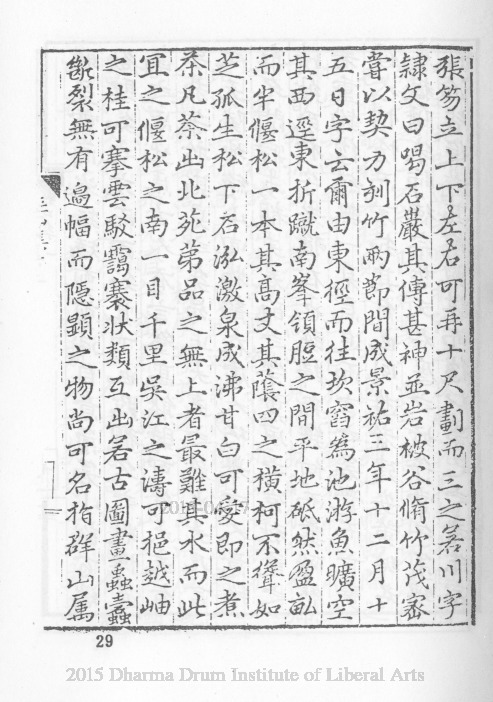 張笏立上下左右可再十尺劃而三之若川字
隸文曰喝石巖其傳甚神並岩被谷脩竹茂密
嘗以契刀刻竹兩節間成景祐三年十二月十
五日字云爾由東徑而往坎窞為池游魚曠空
其西逕東折蹴南峯領脰之間平地砥然盈畝
而半偃松一本其高丈其蔭四之橫柯不聳如
芝孤生松下石泓激泉成沸甘白可愛即之煮
茶凡茶出北苑苐品之無上者最難其水而此
宜之偃松之南一目千里吳江之濤可挹越岫
之桂可搴雲駁靄褰狀類互出若古圖畫蟲蠹
斷裂無有邊幅而隱顯之物尚可名指群山屬
29
2015 Dharma Drum Institute of Liberal Arts